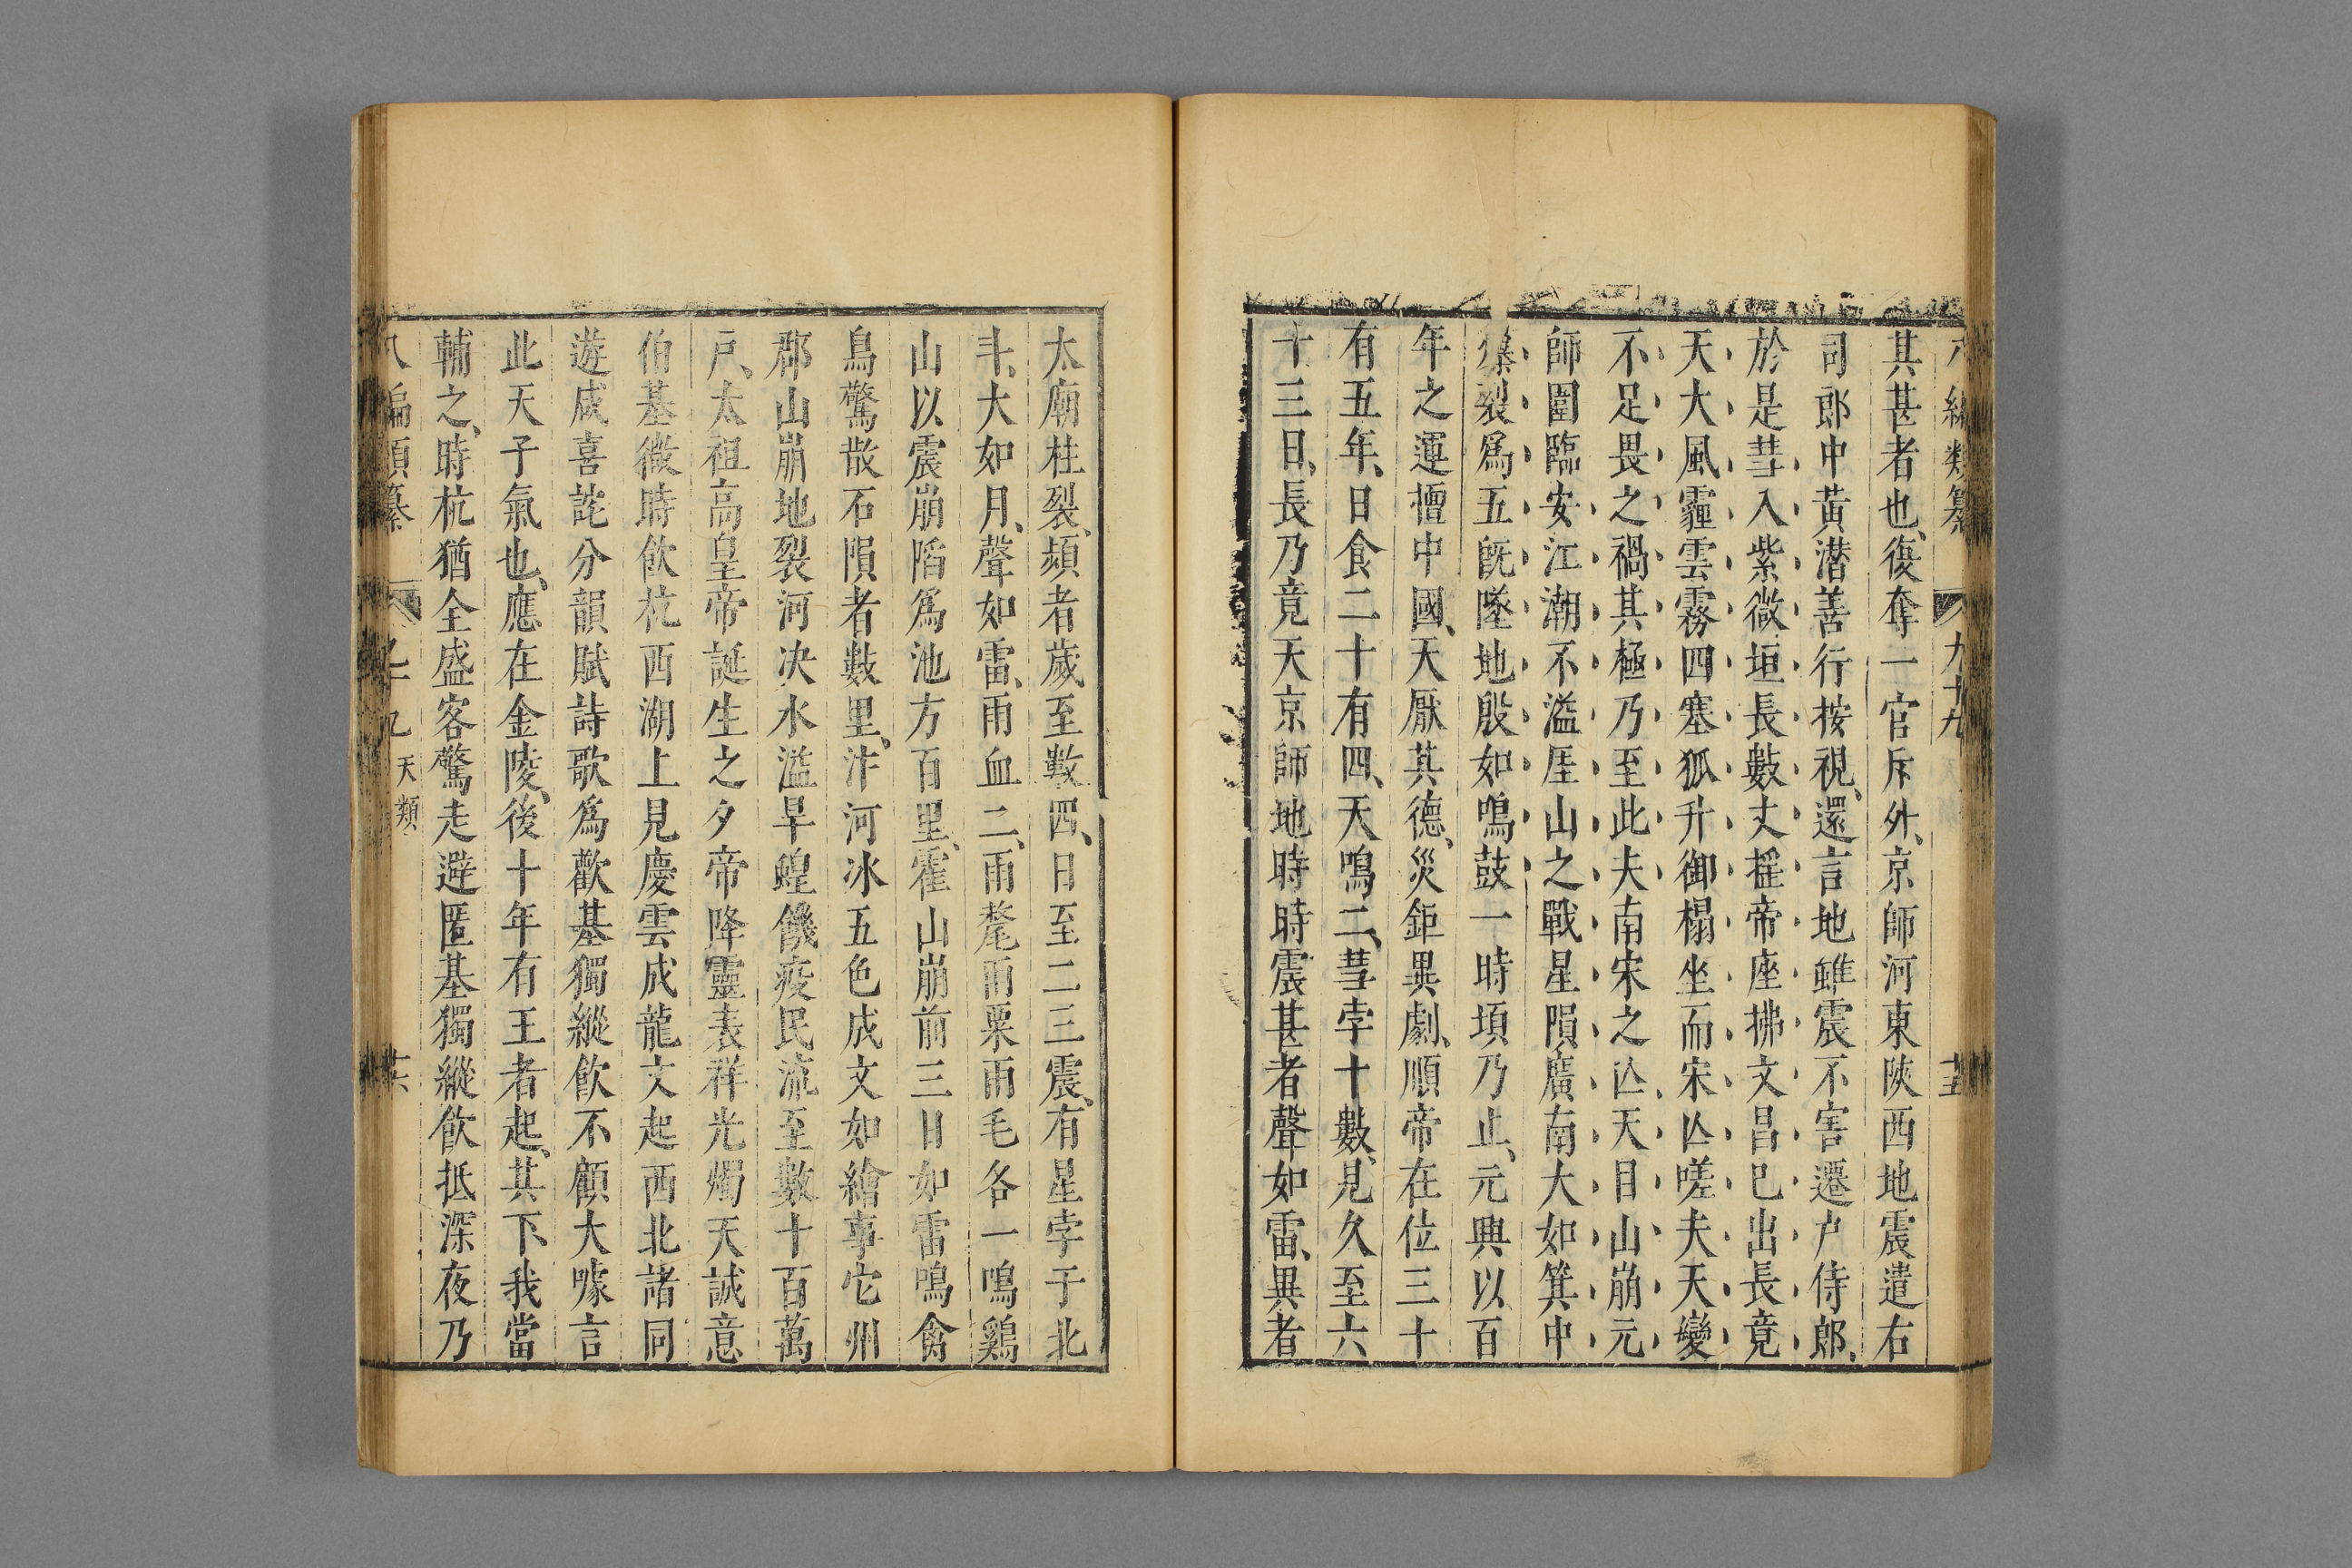 編類纂 九十九 十五
其甚者也復奪一官斥外京師河東陜西地震遣右
司郎中黃潜善行按視還言地雖震不害遷户侍郎
於是彗入紫微垣長數丈摇帝座拂文昌巳出長竟
天大風霾雲霧四塞狐升御榻坐而宋亾嗟夫天變
不足畏之禍其極乃至此夫南宋之亾天目山崩元
師圍臨安江潮不溢厓山之戰星隕廣南大如箕中
裂爲五旣墜地殷如鳴鼓一時頃乃止元興以百
年之運擅中國天厭其德災鉅異劇順帝在位三十
有五年日食二十有四天鳴二彗孛十數見久至六
十三日長乃竟天京師地時時震甚者聲如雷異者
太廟柱裂頻者歲至數四日至二三震有星孛于北
斗大如月聲如雷雨血二雨氂雨粟雨毛各一鳴鷄
山以震崩陷爲池方百里霍山崩前三日如雷鳴禽
鳥驚散石隕者數里汴河冰五色成文如繪事它州
郡山崩地裂河决水溢旱蝗饑疫民流至數十百萬
戸太祖高皇帝誕生之夕帝降靈表祥光燭天誠意
伯基微時飲杭西湖上見慶雲成龍文起西北諸同
遊咸喜詫分韻賦詩歌爲歡基獨縱飲不顧大噱言
此天子氣也應在金陵後十年有王者起其下我當
輔之時杭猶全盛客驚走避匿基獨縱飲抵深夜乃
八編類纂 天類 十六